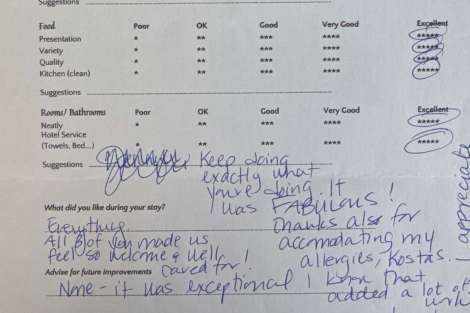 Suggestions
Food Poor OK Good Very Good Excellent
Presentation * ** *** **** *****
Variety * ** *** **** *****
Quality * ** *** **** *****
Kitchen (clean) * ** *** **** *****
Suggestions
Rooms/ Bathrooms Poor OK Good Very Good Excellent
Neatly * ** *** **** *****
Hotel Service
(Towels, Bed...) * ** *** **** *****
Suggestions Keep doing
exactly what
you're doing. It
was FABULOUS!
What did you like during your stay?
Everything.
All of you made us
feel so welcome & well
cared for!
Thanks also for
accmodating my
allergies, Kostas.
I know that
added a lot of
work
appreciate
Advise for future improvements
None - it was exceptional